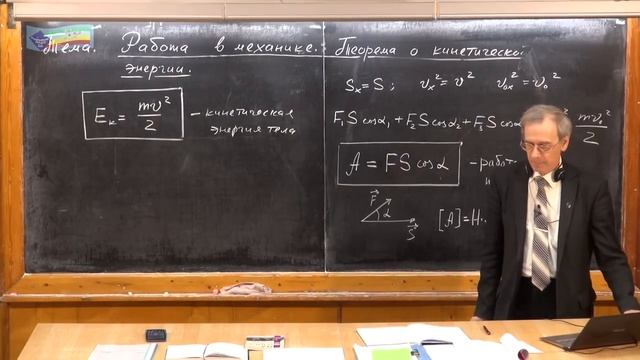 Тема. Работа в механике. Теорема о кинетической
энергии.
Eк = mv²/2 – кинетическая
энергия тела
Sx = S; vx² = v² vox² = vo²
F₁S cosα₁ + F₂S cosα₂ + F₃S cosα
A = FS cosα – работ
F α S [A] = Н·